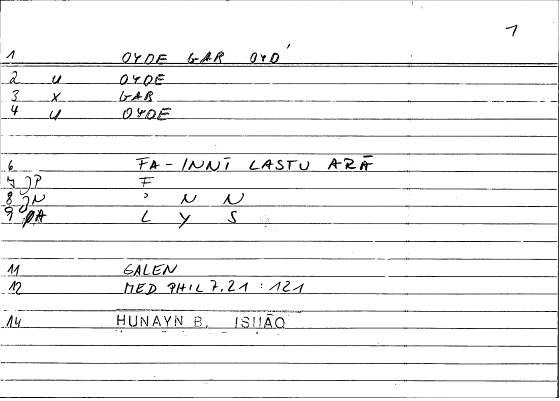 1
1 OYDE GAR OYD'
2 u OYDE
3 x GAR
4 u OYDE
6 FA-INNĪ LASTU ARĀ
7 JP F
8 JN ' N N
9 PA L Y S
11 GALEN
12 MED PHIL 7.21 : 121
14 HUNAYN B. ISHĀQ